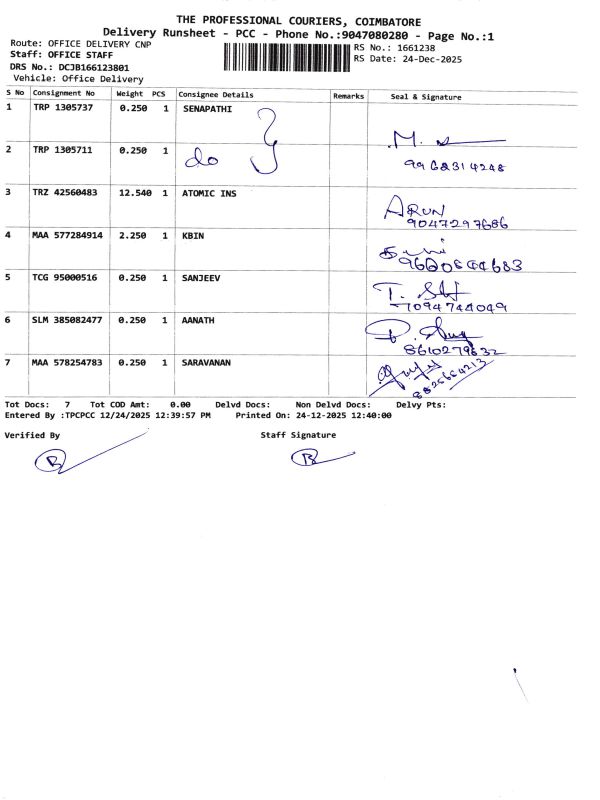 THE PROFESSIONAL COURIERS, COIMBATORE
Delivery Runsheet - PCC - Phone No.:9047080280 - Page No.:1
Route: OFFICE DELIVERY CNP
Staff: OFFICE STAFF
DRS No.: DCJB166123801
Vehicle: Office Delivery
RS No.: 1661238
RS Date: 24-Dec-2025
S No Consignment No Weight PCS Consignee Details Remarks Seal & Signature
1 TRP 1305737 0.250 1 SENAPATHI
M.
2 TRP 1305711 0.250 1 do
3 TRZ 42560483 12.540 1 ATOMIC INS
ARUN
9047297686
4 MAA 577284914 2.250 1 KBIN
5 TCG 95000516 0.250 1 SANJEEV
7094744049
6 SLM 385082477 0.250 1 AANATH
8610279632
7 MAA 578254783 0.250 1 SARAVANAN
Tot Docs: 7 Tot COD Amt: 0.00 Delvd Docs: Non Delvd Docs: Delvy Pts:
Entered By :TPCPCC 12/24/2025 12:39:57 PM Printed On: 24-12-2025 12:40:00
Verified By Staff Signature